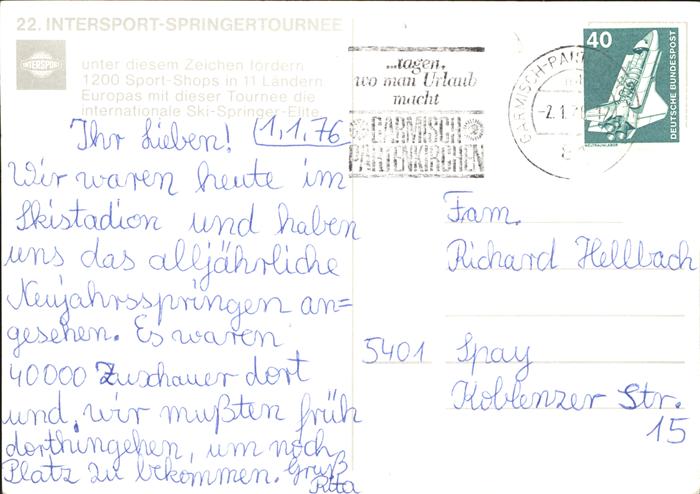 22. INTERSPORT-SPRINGERTOURNEE
INTERSPORT
unter diesem Zeichen fördern
1200 Sport-Shops in 11 Ländern
Europas mit dieser Tournee die
internationale Ski-Springer-Elite
Ihr Lieben! 1.1.76
Wir waren heute im
Skistadion und haben
uns das alljährliche
Neujahrsspringen an=
gesehen. Es waren
40000 Zuschauer dort
und wir mußten früh
dorthingehen, um noch
Platz zu bekommen. Gruß
Rita
...tagen,
wo man Urlaub
macht
GARMISCH
PARTENKIRCHEN
GARMISCH-PA
-2.1.
40
DEUTSCHE BUNDESPOST
WELTRAUMLABOR
Fam.
Richard Hellbach
5401 Spay
Koblenzer Str.
15